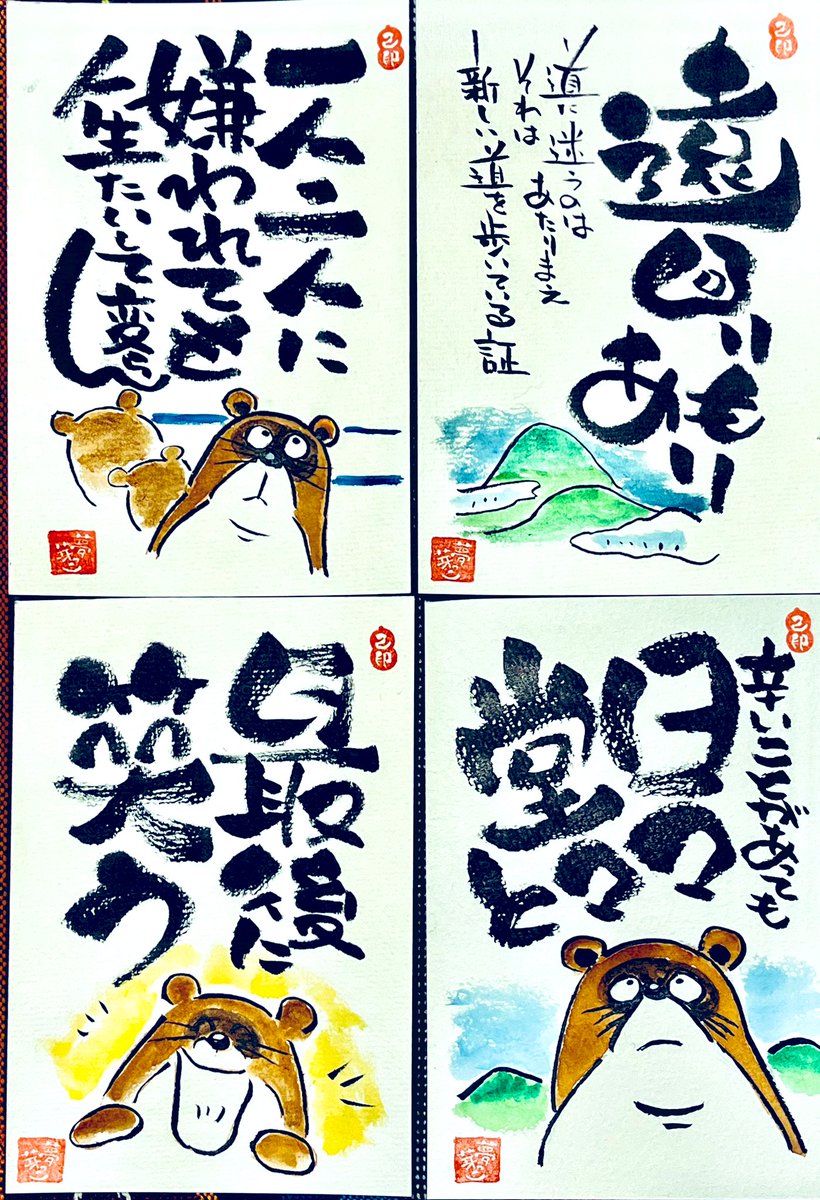 一人二人に
嫌われても
人生たいして変らん
己印
遠回りもあり
道に迷うのは
あたりまえ
それは
新しい道を歩いている証
己印
最後に
笑う
己印
辛いことがあっても
日々
堂々と
己印